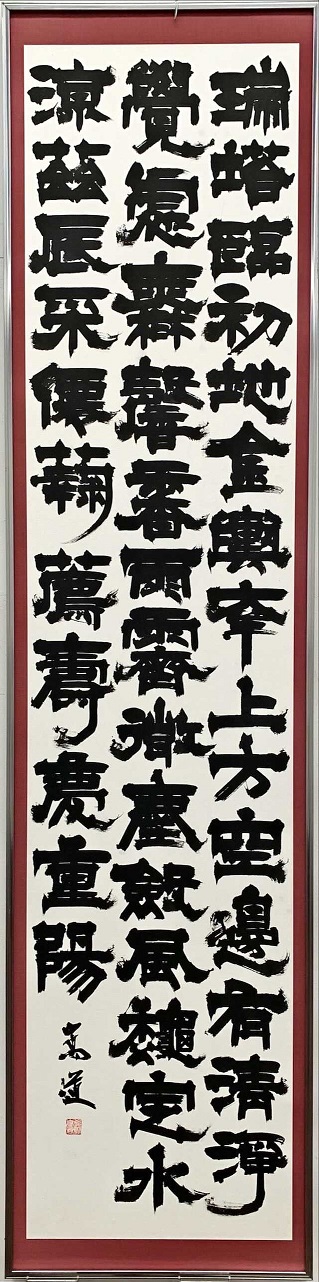 瑞塔臨初地金輿幸上方空邊有清淨
覺處無馨香雨霽微塵斂風龝定水
涼茲辰采僊蘜薦壽慶重陽